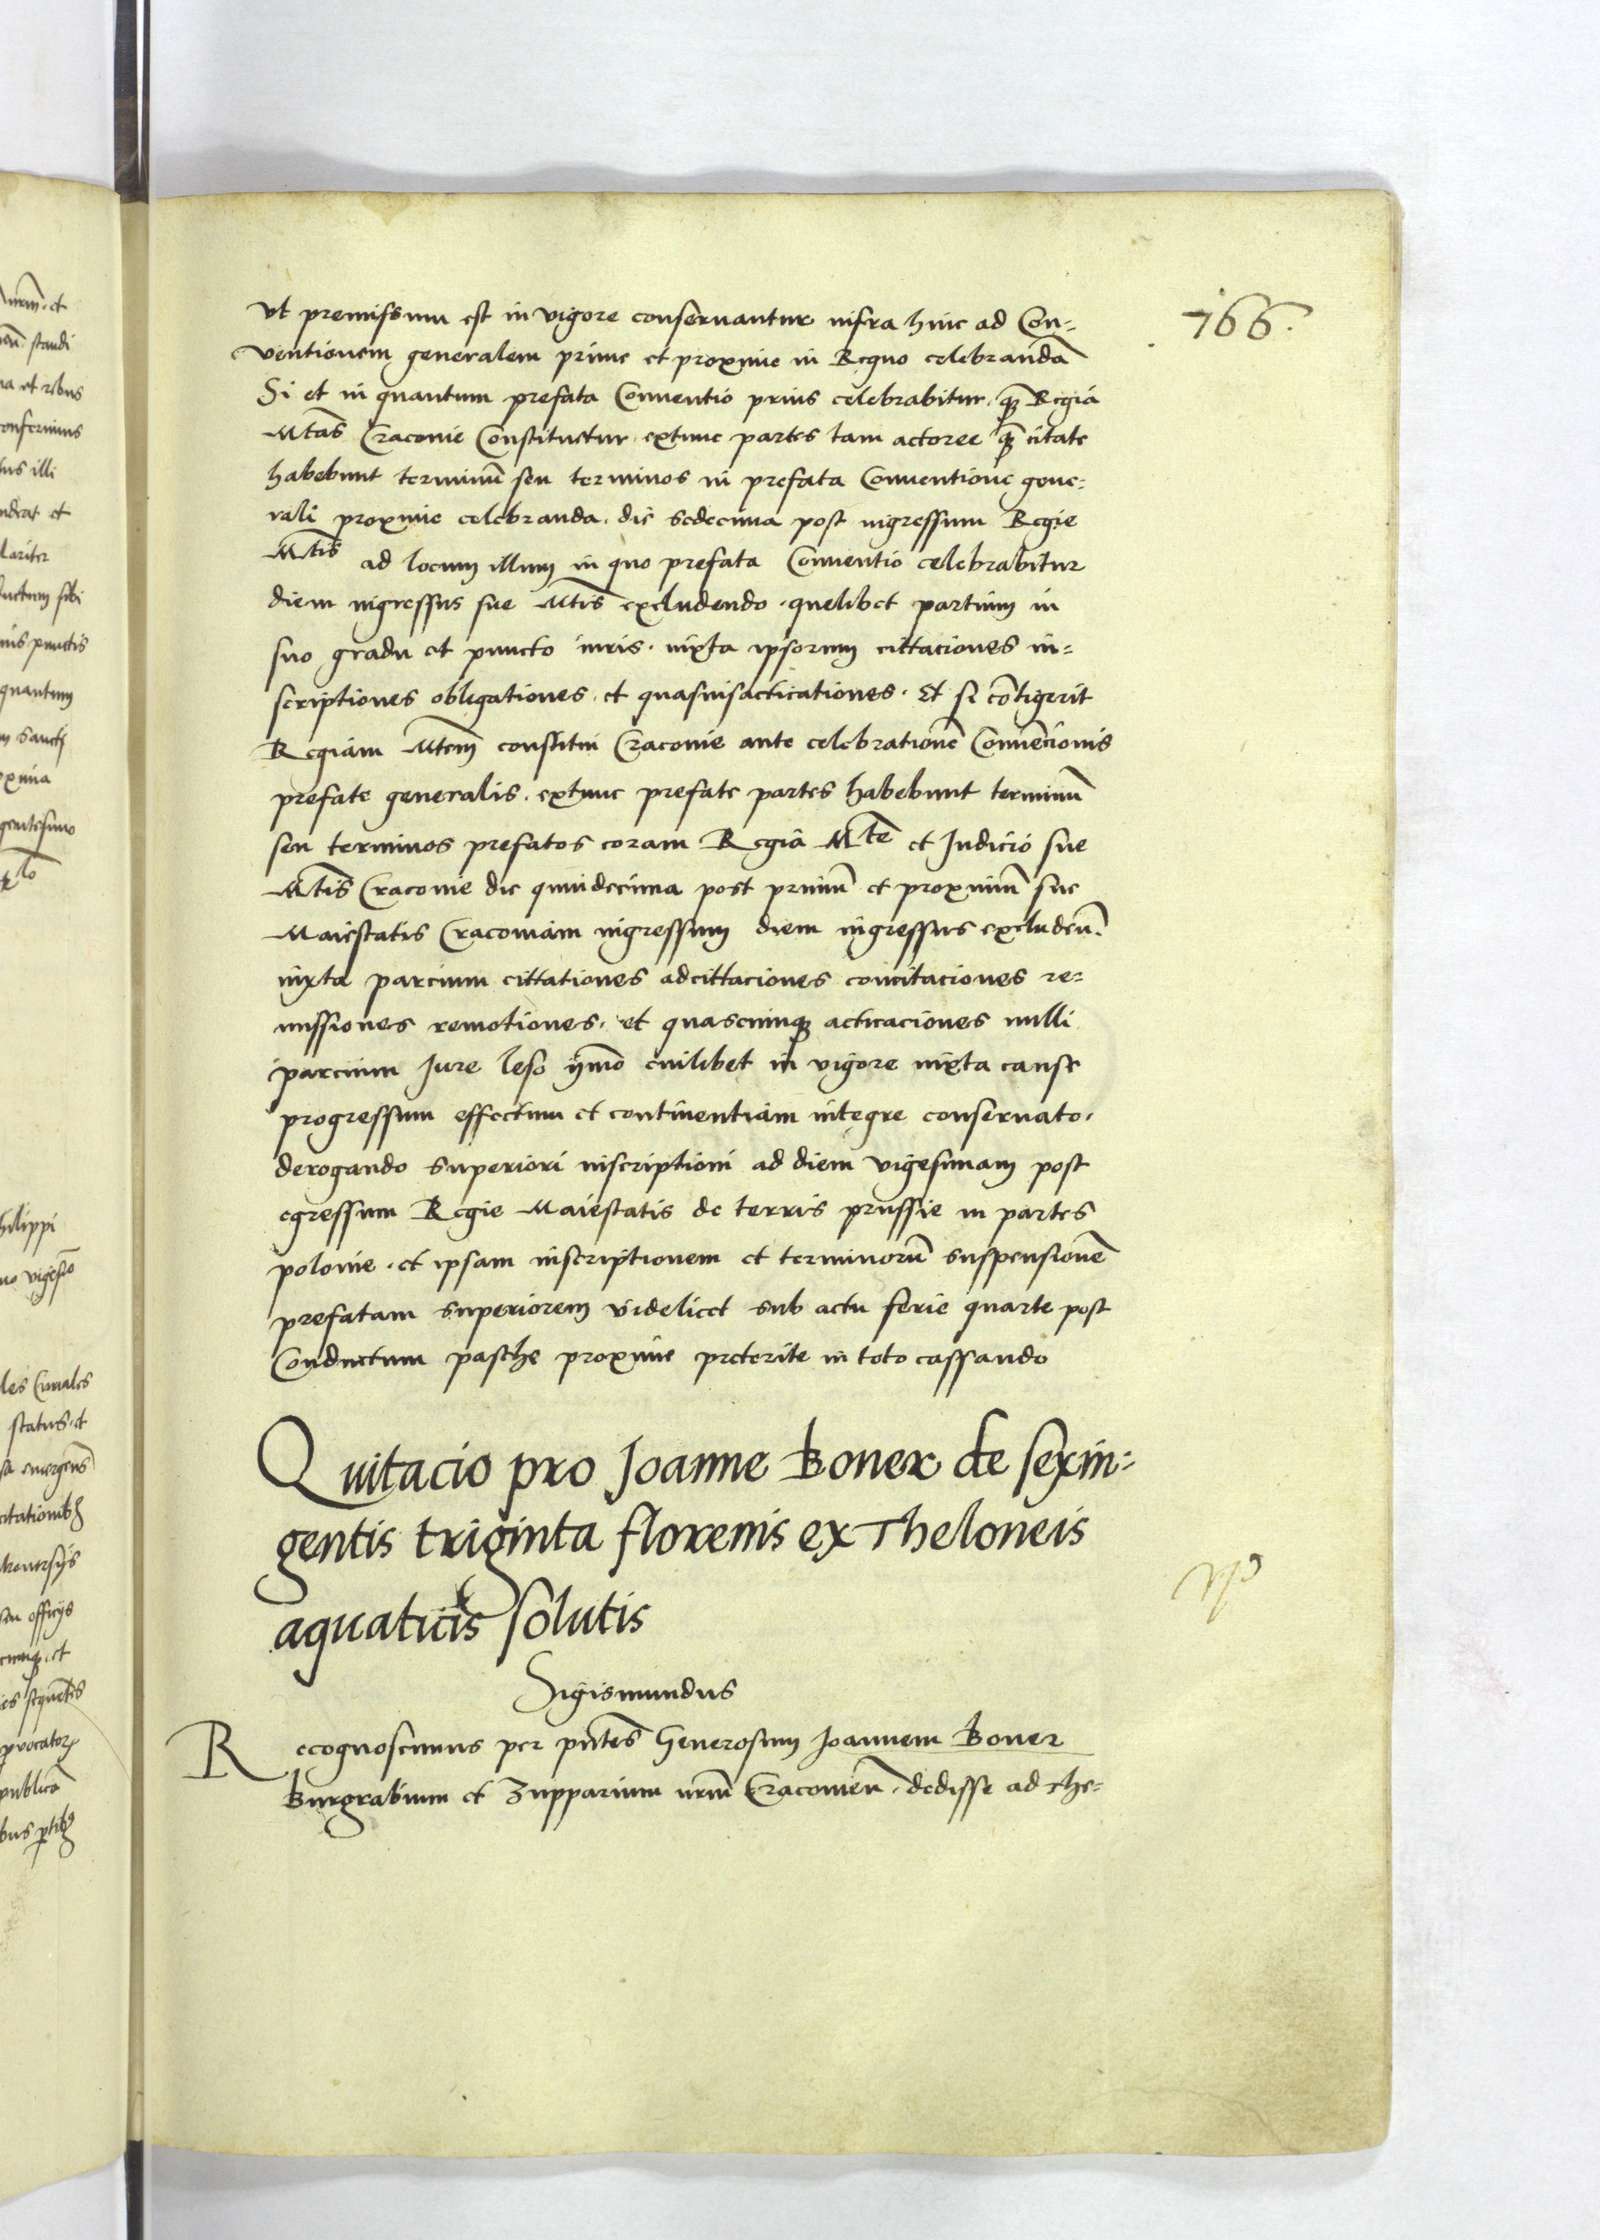 766.
vt premissum est in vigore conseruantur infra hinc ad Con-
ventionem generalem prime et proxime in Regno celebrandã
Si et in quantum prefata Conuentio prius celebrabitur. q̃ Regia
Mtas Cracouie Constituetur. extunc partes tam actoree q̃ citate
habebunt terminũ seu terminos in prefata Conuentione gene-
rali proxime celebranda. die sedecima post ingressum Regie
Mtis ad locum illum in quo prefata Conuentio celebrabitur
diem ingressus sue Mtis excludendo. quelibet partium in
suo gradu et puncto iuris. iuxta ipsorum cittaciones in-
scriptiones obligationes. et quasuisacticationes. Et si cõtigerit
Regiam Mtem constitui Cracouie ante celebrationẽ Conuẽcionis
prefate generalis. extunc prefate partes habebunt terminũ
seu terminos prefatos coram Regia Mte et Iudicio sue
Mtis Cracouie die quindecima post primũ et proximũ sue
Maiestatis Cracouiam ingressum diem ingressus excludeñ.
iuxta parcium cittationes adcittaciones concitaciones re-
missiones remotiones. et quascunq acticaciones nulli
parcium Iure leso ÿmo cuilibet in vigore iuxta cause
progressum effectum et continentiam integre conseruato.
derogando superiori inscriptioni ad diem vigesimam post
egressum Regie Maiestatis de terris prussie in partes
polonie. et ipsam inscriptionem et terminorũ suspensionẽ
prefatam superiorem videlicet sub actu ferie quarte post
Conductum pasche proxime preterite in toto cassando
Quitacio pro Joanne Boner de sexin-
gentis triginta florenis ex Theloneis
aquaticis solutis
Sigismundus
Recognoscimus per pñtes Generosum Joannem Boner
Burgrabium et Zupparium nr̃m Cracouieñ. dedisse ad the-